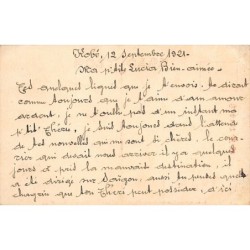 Kobé, 12 Septembre 1921.
Ma p'tite Lucia Bien-aimée
Ces quelques lignes que je t'envois te diront
comme toujours que je t'aime d'un amour
ardent, je ne t'oublie pas d'un instant ma
p'tite Chérie, je suis toujours dans l'attente
de tes nouvelles qui me sont si chères, le
courrier qui devait nous arriver il y a quelques
jours a pris la mauvaise destination, il
a été dirigé sur Saïgon, aussi tu parles quel
chagrin que ton Chéri peut posséder, d'ici